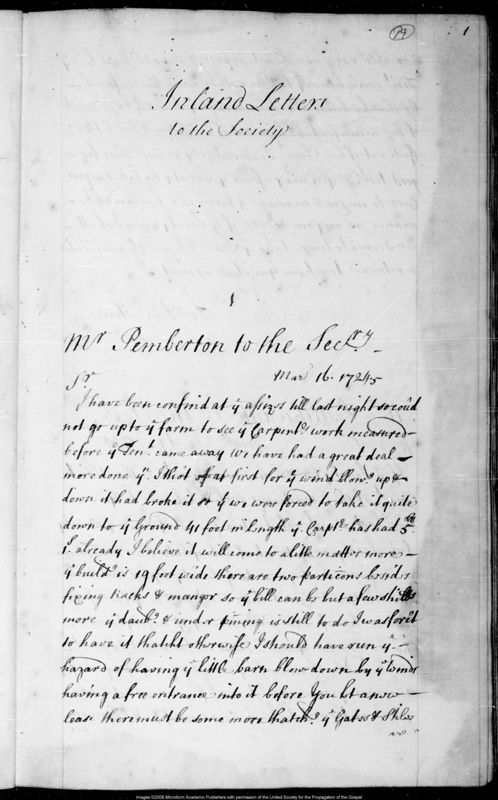 79
1
Inland Letters
to the Society
1
Mr Pemberton to the Secry
Mar 16. 1724/5
Sr
I have been confind at ye assizes till last night so coud
not go up to ye farm to see ye Carpentrs work measured
before ye Tent came away we have had a great deal
more done yn I thot of at first for ye wind blowg up &
down it had broke it so yt we were forced to take it quite
down to ye Ground 41 foot in length ye Carptr has had 5
already I believe it will come to a little matter more
ye buildg is 19 foot wide there are two particons besides
fixing Racks & mangor so ye bill can be but a few shills
more ye daubg & under pining is still to do I was forc't
to have it thatcht otherwise I should have run ye
hazard of having ye little barn blow down by ye Winds
having a free entrance into it before You let a new
lease there must be some more thatchg ye Gates & Stiles
are
Images ©2008 Microform Academic Publishers with permission of the United Society for the Propagation of the Gospel